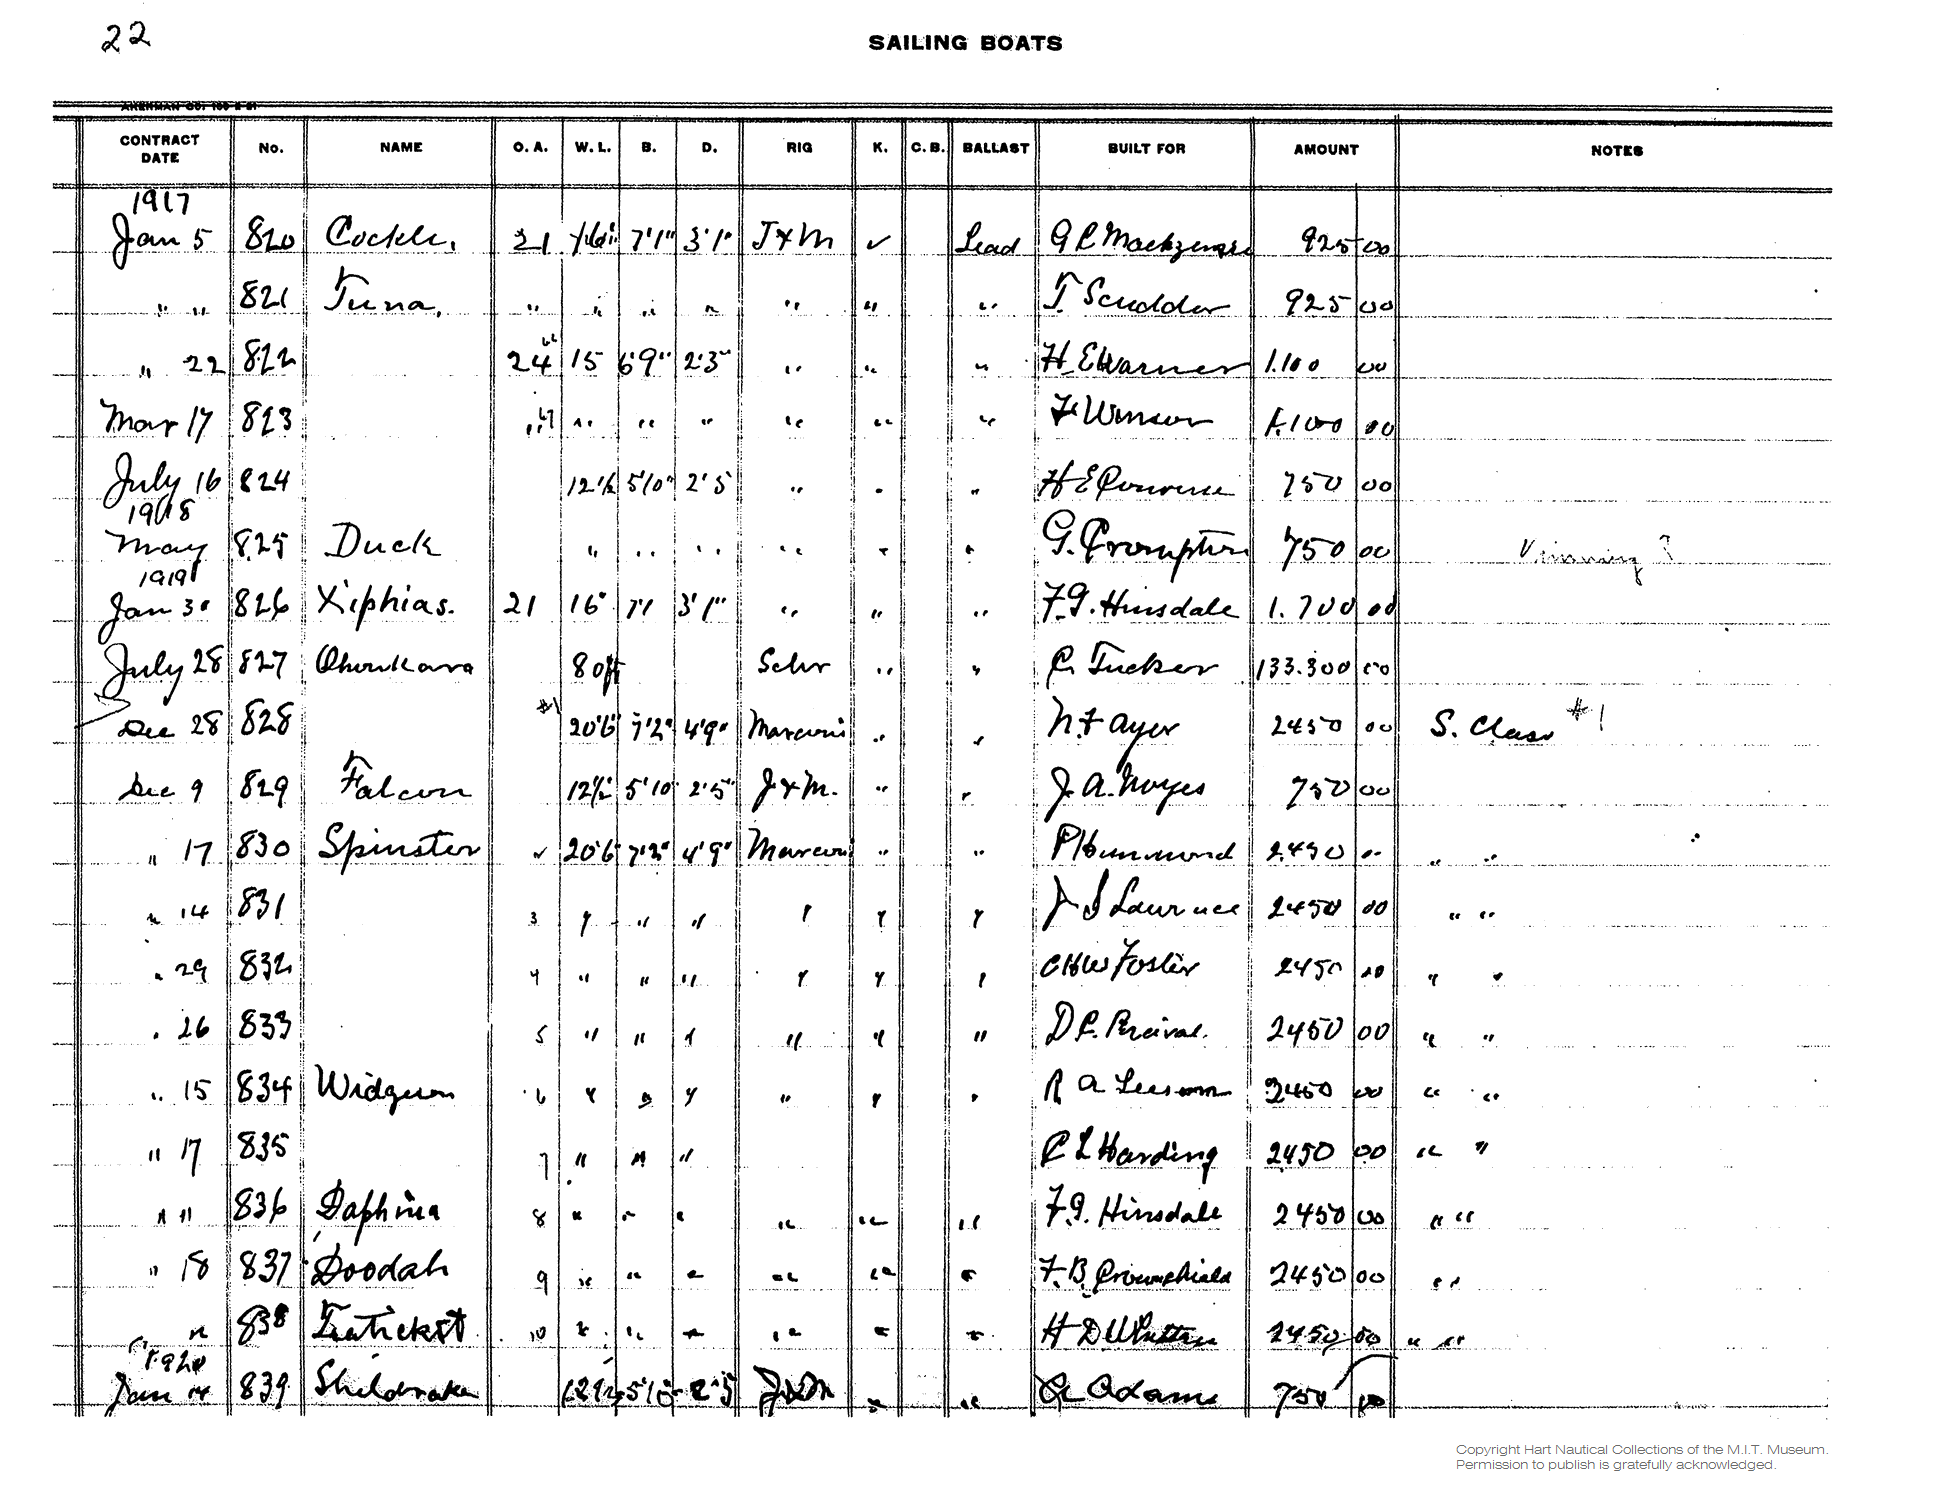 22
SAILING BOATS
CONTRACT DATE No. NAME O. A. W. L. B. D. RIG K. C. B. BALLAST BUILT FOR AMOUNT NOTES
1917
Jan 5 820 Cockle. 21 7'1" 3'1" J & M ✓ Lead 925 00
" " 821 Tuna. " " " " " " " T. Scudder 925 00
" 22 822 24 15 6'9" 2'3" " " " H. E Warner 1.100 00
Mar 17 823 " " " " " " " F Winsor 1.100 00
July 16 824 12 1/2 5'10" 2'5 " " " H E Converse 750 00
1918
May 825 Duck " " " " " " G. Crompton 750 00
1919
Jan 30 826 Xiphias. 21 16 7'1 3'1" " " " F. G. Hinsdale 1.700 00
July 28 827 Ohonkara 80 ft Schr " " C. Tucker 133.300 00
Dec 28 828 #1 20'6" 7'2" 4'9" Marconi " " N. F Ayer 2450 00 S. Class #1
Dec 9 829 Falcon 12 1/2 5'10" 2'5" J & M. " " J. A. Noyes 750 00
" 17 830 Spinster 20'6 7'2" 4'9" Marconi " " P Hammond 2.450 " " "
" 14 831 3 " " " " " " J S Lawrence 2450 00 " "
" 29 832 4 " " " " " " C H W Foster 2450 00 " "
" 26 833 5 " " " " " " D. C. Percival. 2450 00 " "
" 15 834 Widgeon 6 " " " " " " R A Leeson 2450 00 " "
" 17 835 7 " " " C L Harding 2450 00 " "
" " 836 Daphina 8 " " " " " " F. G. Hinsdale 2450 00 " "
" 18 837 Doodah 9 " " " " " " F. B. Crowninshield 2450 00 " "
" 838 10 " " " " " " H D 2450 00 " "
1920
Jan 14 839 Sheldrake 12 1/2 5'10 2'5 J & M " " Adams 750 00
Copyright Hart Nautical Collections of the M.I.T. Museum.
Permission to publish is gratefully acknowledged.